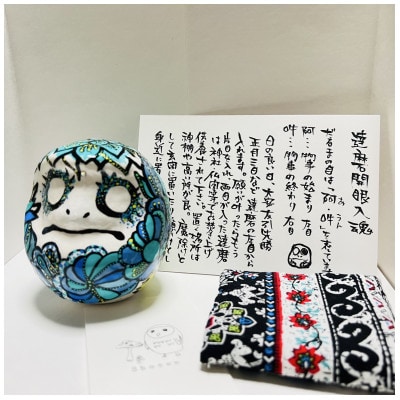 達磨開眼入魂
だるまの目は「阿・吽」を表しています
あ うん
阿…物事の始まり 左目
吽…物事の終わり 右目
日の良い日 大安 友引 先勝
正月三日など 達磨の左目から
入れます。願いがかなったらもう
片目を入れ、両目が入った達磨
は神社 仏閣等でお焚き上げ
供養されて下さい。置く場所は
神棚や高い所が良。魔除けと
して玄関に置いたり
身近に置